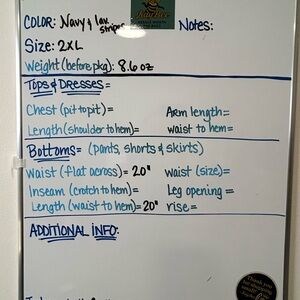 COLOR: Navy & lav stripes Notes:
Size: 2XL
Weight (before pkg): 8.6 oz
Tops & Dresses=
Chest (pit to pit)= Arm length=
Length (shoulder to hem)= waist to hem=
Bottoms= (pants, shorts & skirts)
Waist (flat across)= 20" waist (size)=
Inseam (crotch to hem)= Leg opening=
Length (waist to hem)= 20" rise=
ADDITIONAL INFO:
Thank you
for shopping
small!